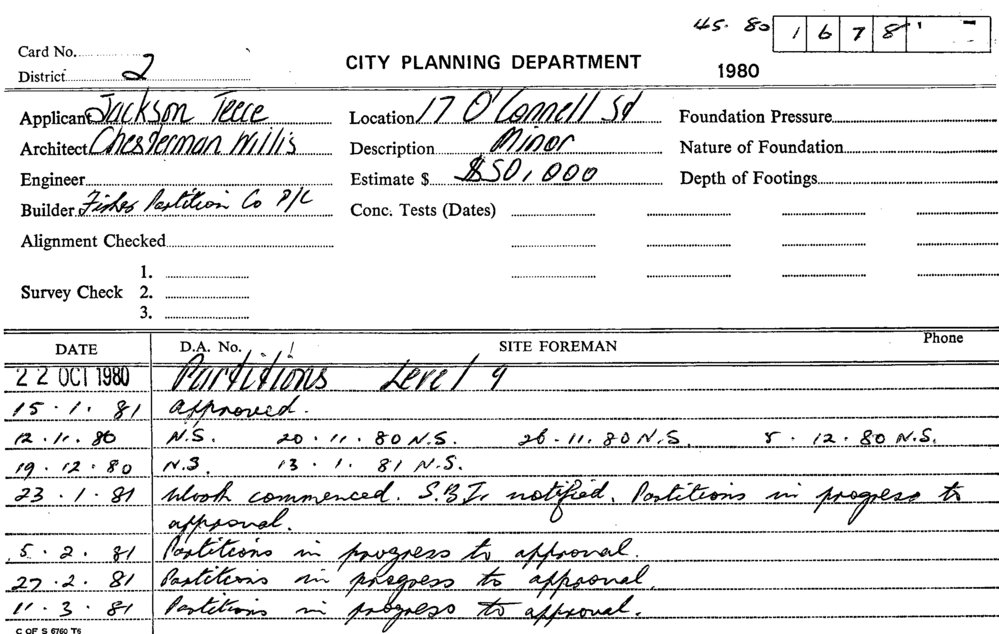 45. 80 1678
Card No.
District 2
CITY PLANNING DEPARTMENT
1980
Applicant Jackson Teece Location 17 O'Connell St Foundation Pressure
Architect Chesterman Willis Description Minor Nature of Foundation
Engineer Estimate $ $50,000 Depth of Footings
Builder Fisher Partition Co P/L Conc. Tests (Dates)
Alignment Checked
1.
Survey Check 2.
3.
DATE D.A. No. SITE FOREMAN Phone
22 OCT 1980 Partitions Level 9
15.1.81 approved.
12.11.80 N.S. 20.11.80 N.S. 26.11.80 N.S. 5.12.80 N.S.
19.12.80 N.S. 13.1.81 N.S.
23.1.81 Work commenced. notified. Partitions in progress to
approval.
5.2.81 Partitions in progress to approval.
27.2.81 Partitions in progress to approval.
11.3.81 Partitions in progress to approval.
C OF S 6760 T6